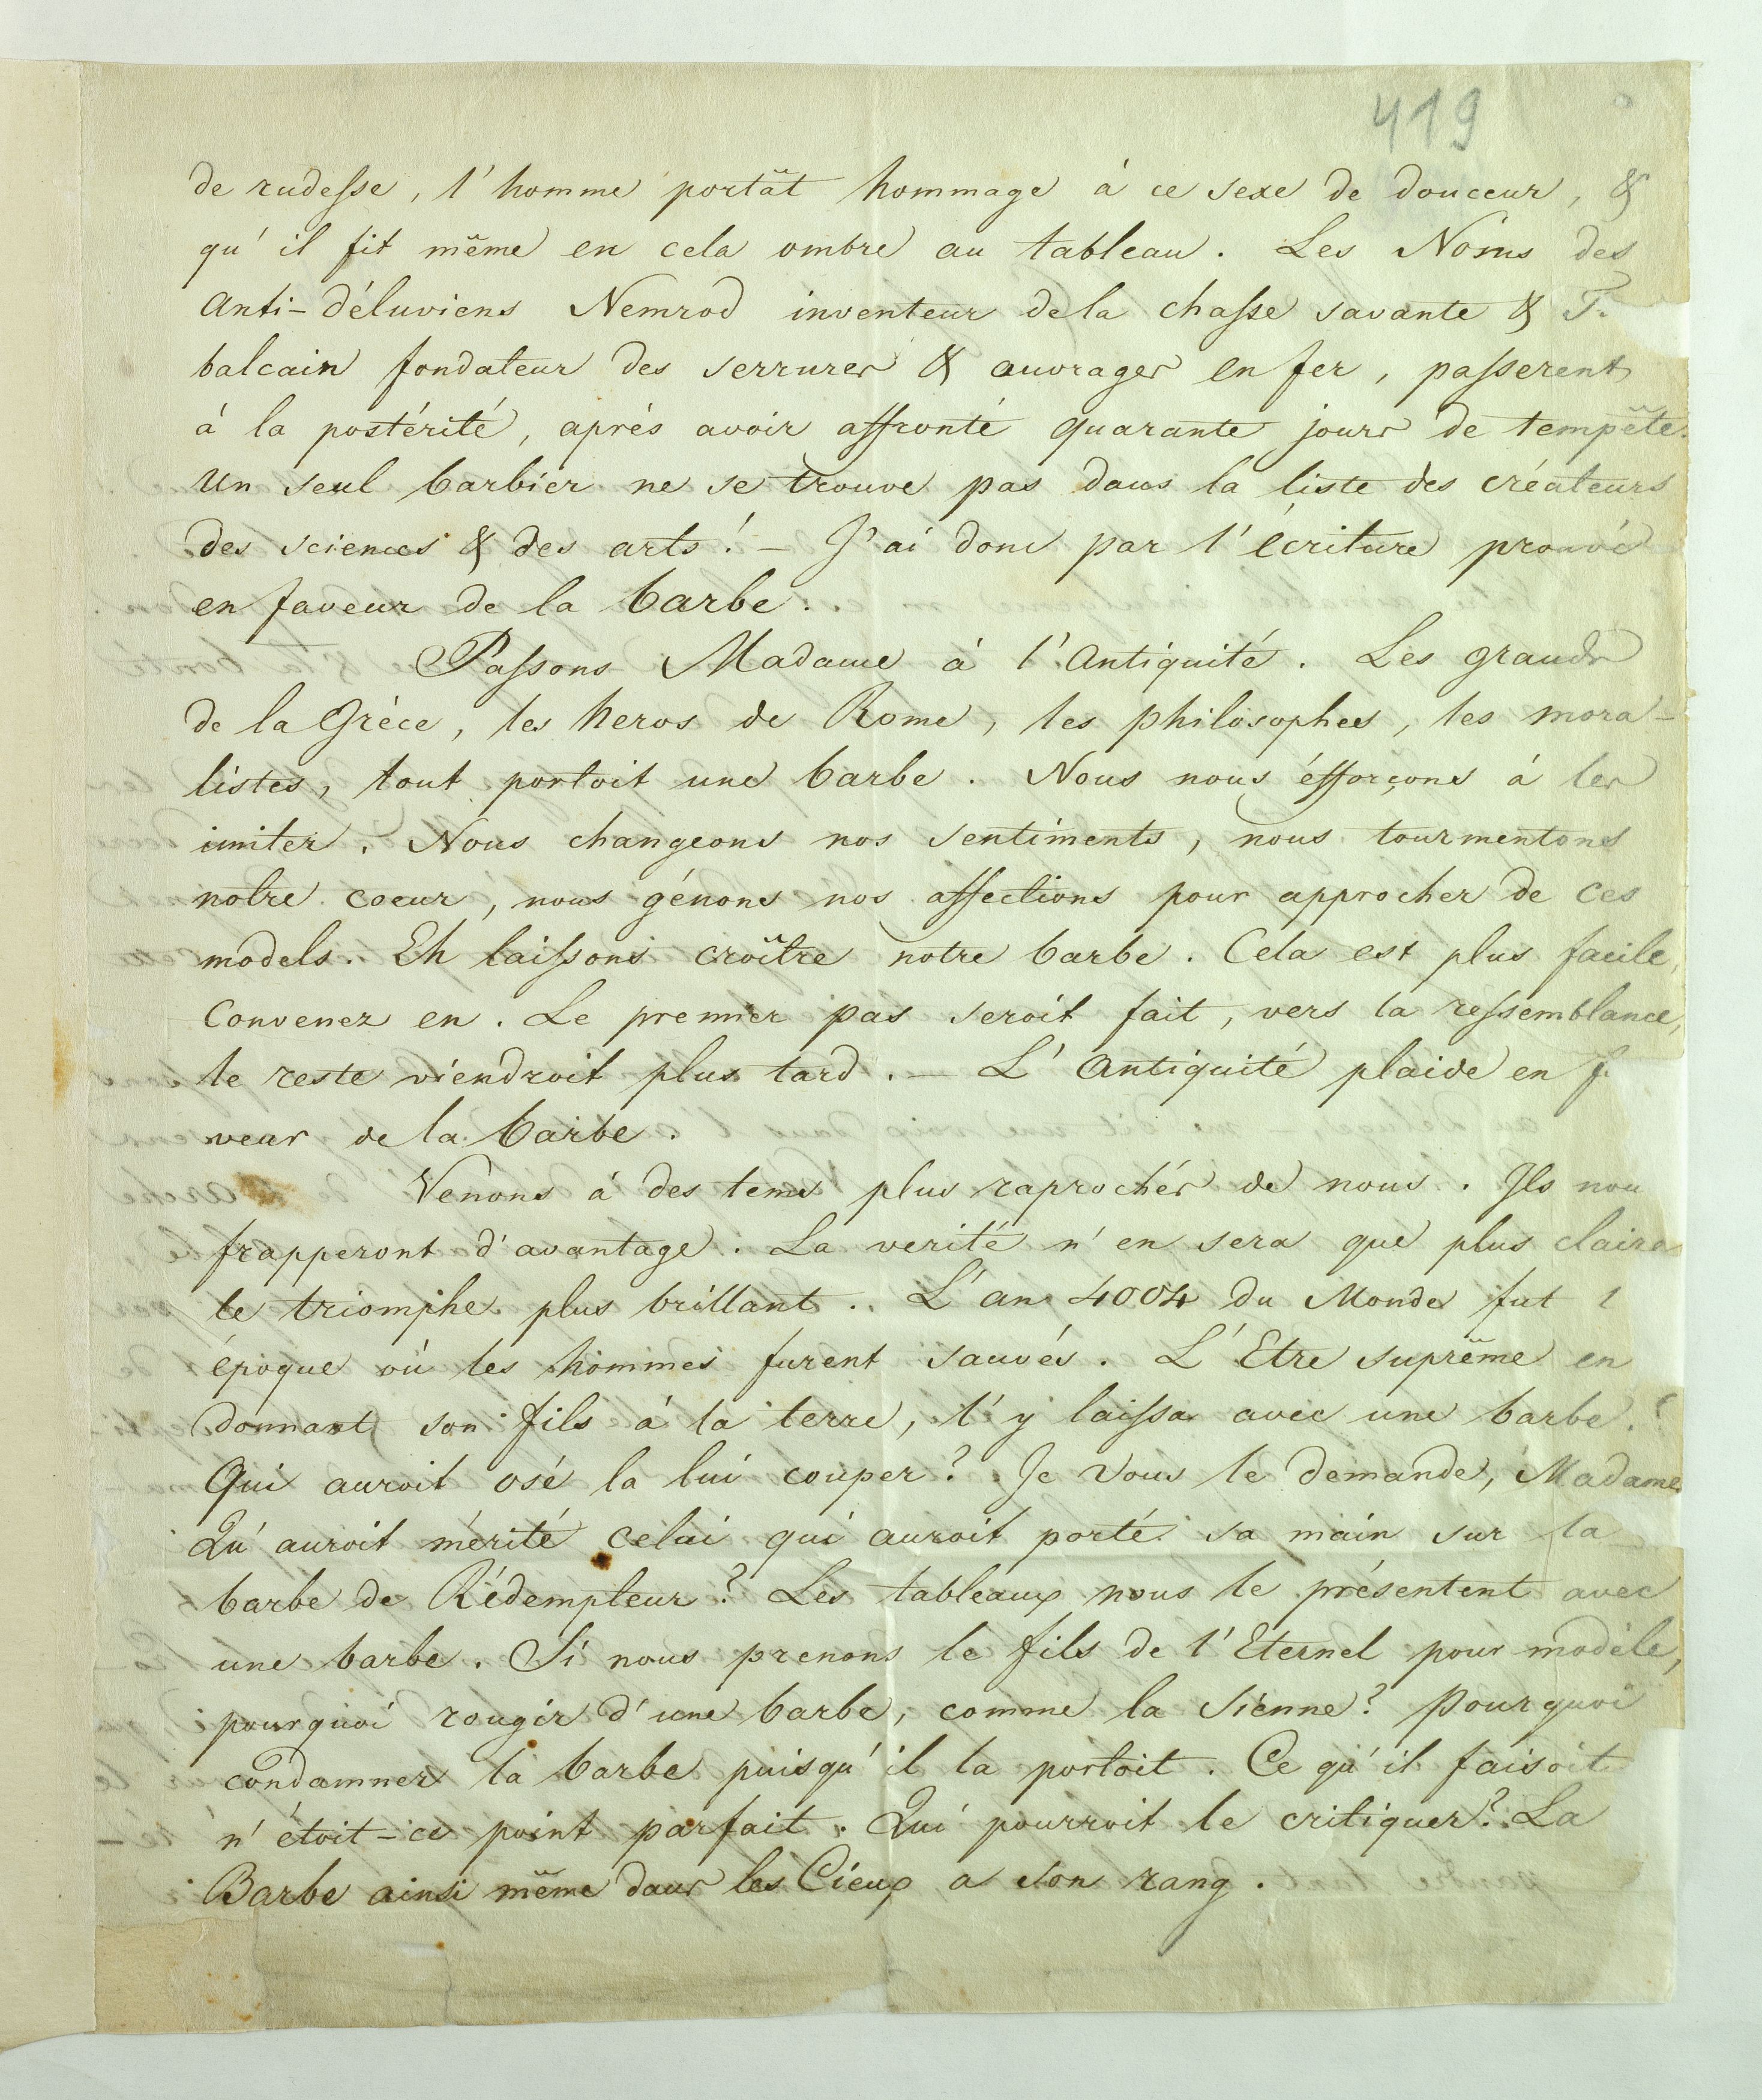 419
de rudesse, l'homme portât hommage à ce sexe de douceur, &
qu'il fit même en cela ombre au tableau. Les Noms des
Anti-déluviens Nemrod inventeur de la chasse savante & T.
balcain fondateur des serrures & ouvrages en fer, passerent
à la postérité, aprés avoir affronté quarante jours de tempête.
Un seul barbier ne se trouve pas dans la liste des créateurs
des sciences & des arts! – J'ai donc par l'écriture prouvé
en faveur de la barbe.
Passons Madame à l'Antiquité. Les grands
de la Gréce, les heros de Rome, les philosophes, les mora-
listes, tout portoit une barbe. Nous nous éfforçons à les
imiter. Nous changeons nos sentiments, nous tourmentons
notre coeur, nous génons nos affections pour approcher de ces
models. Eh laissons croître notre barbe. Cela est plus facile,
Convenez en. Le premier pas seroit fait, vers la ressemblance,
le reste viendroit plus tard. – L'Antiquité plaide en f
veur de la barbe.
Venons à des tems plus raprochés de nous. Ils nou
frapperont d'avantage. La verité n'en sera que plus claire
le triomphe plus brillant. L'an 4004 du Monde fut l
époque où les hommes furent sauvés. L'Etre suprême en
donnant son fils à la terre, l'y laissa avec une barbe.
Qui auroit osé la lui couper? Je vous le demande, Madame
Qu'auroit mérité celui qui auroit porté sa main sur la
barbe de Rédempteur? Les tableaux nous le présentent avec
une barbe. Si nous prenons le fils de l'Eternel pour modèle,
pourquoi rougir d'une barbe, comme la sienne? Pourquoi
condamner la barbe puisqu'il la portoit. Ce qu'il faisoit
n'étoit-ce point parfait. Qui pourroit le critiquer? La
Barbe ainsi même dans les Cieux a son rang.